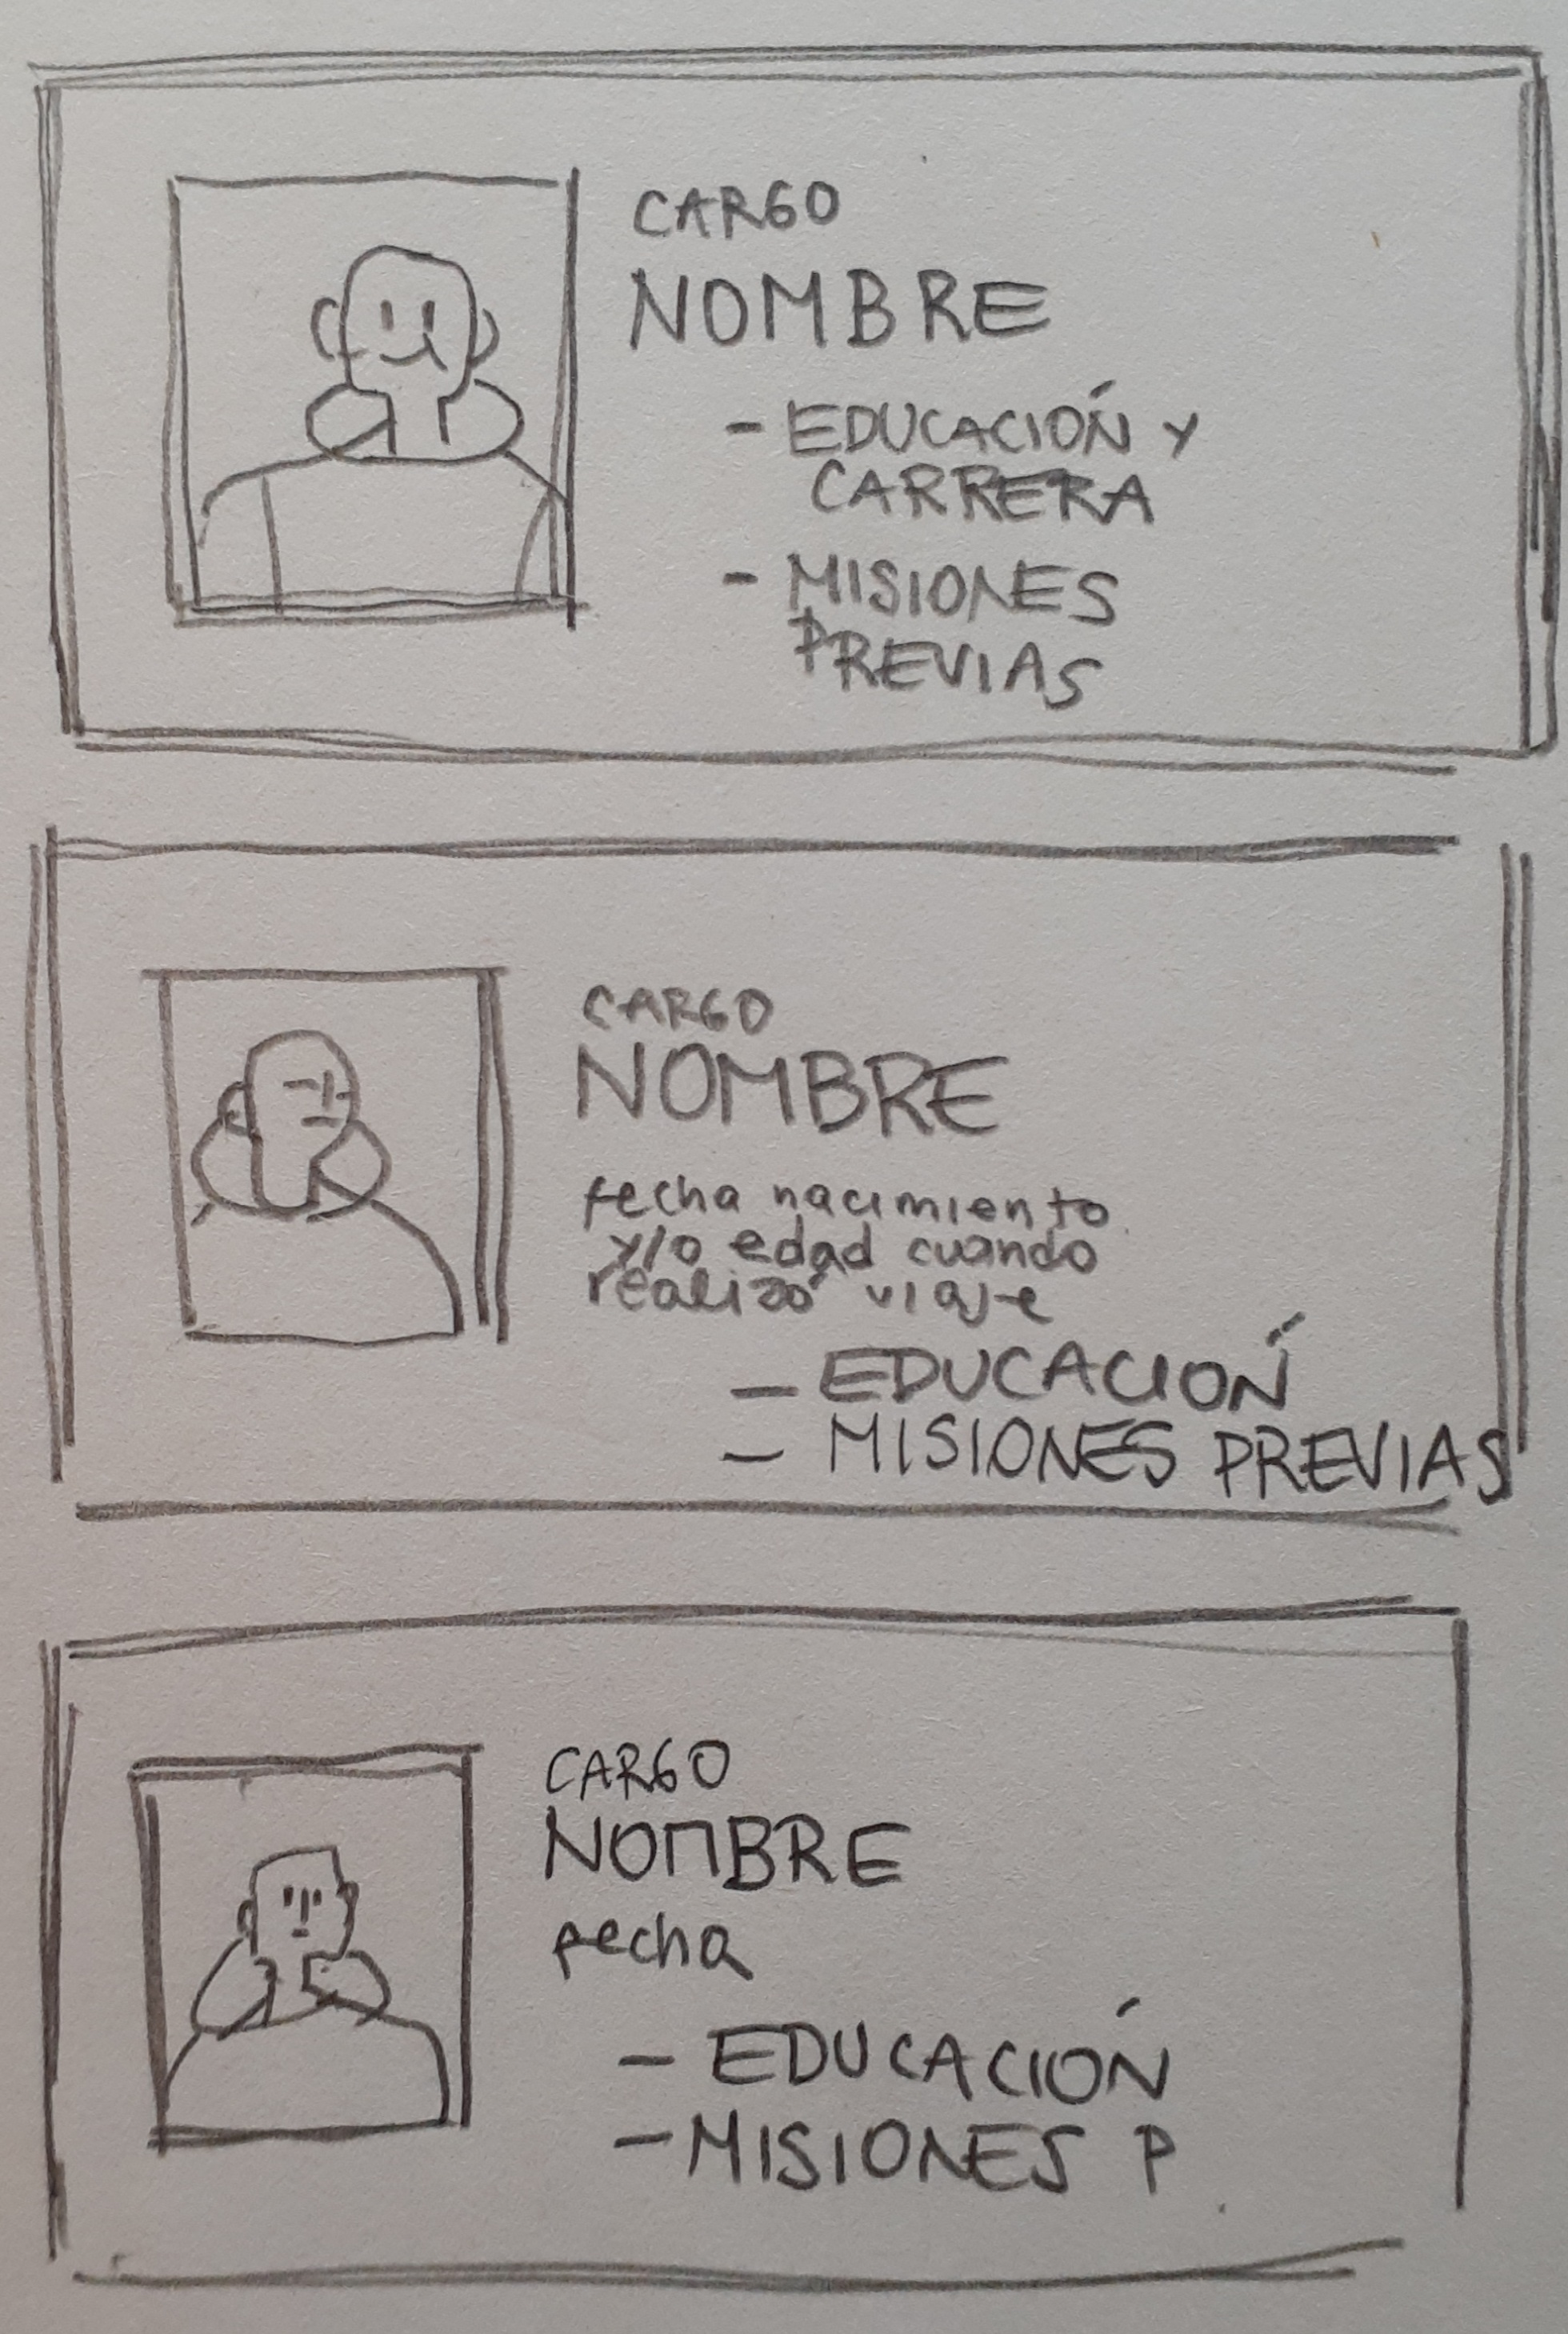 CARGO
NOMBRE
- EDUCACIÓN Y
CARRERA
- MISIONES
PREVIAS
CARGO
NOMBRE
fecha nacimiento
y/o edad cuando
realizó viaje
- EDUCACIÓN
- MISIONES PREVIAS
CARGO
NOMBRE
fecha
- EDUCACIÓN
- MISIONES P.